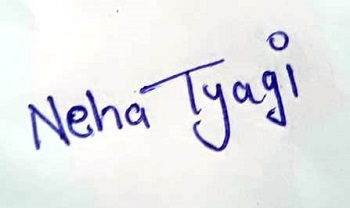 Neha Tyagi